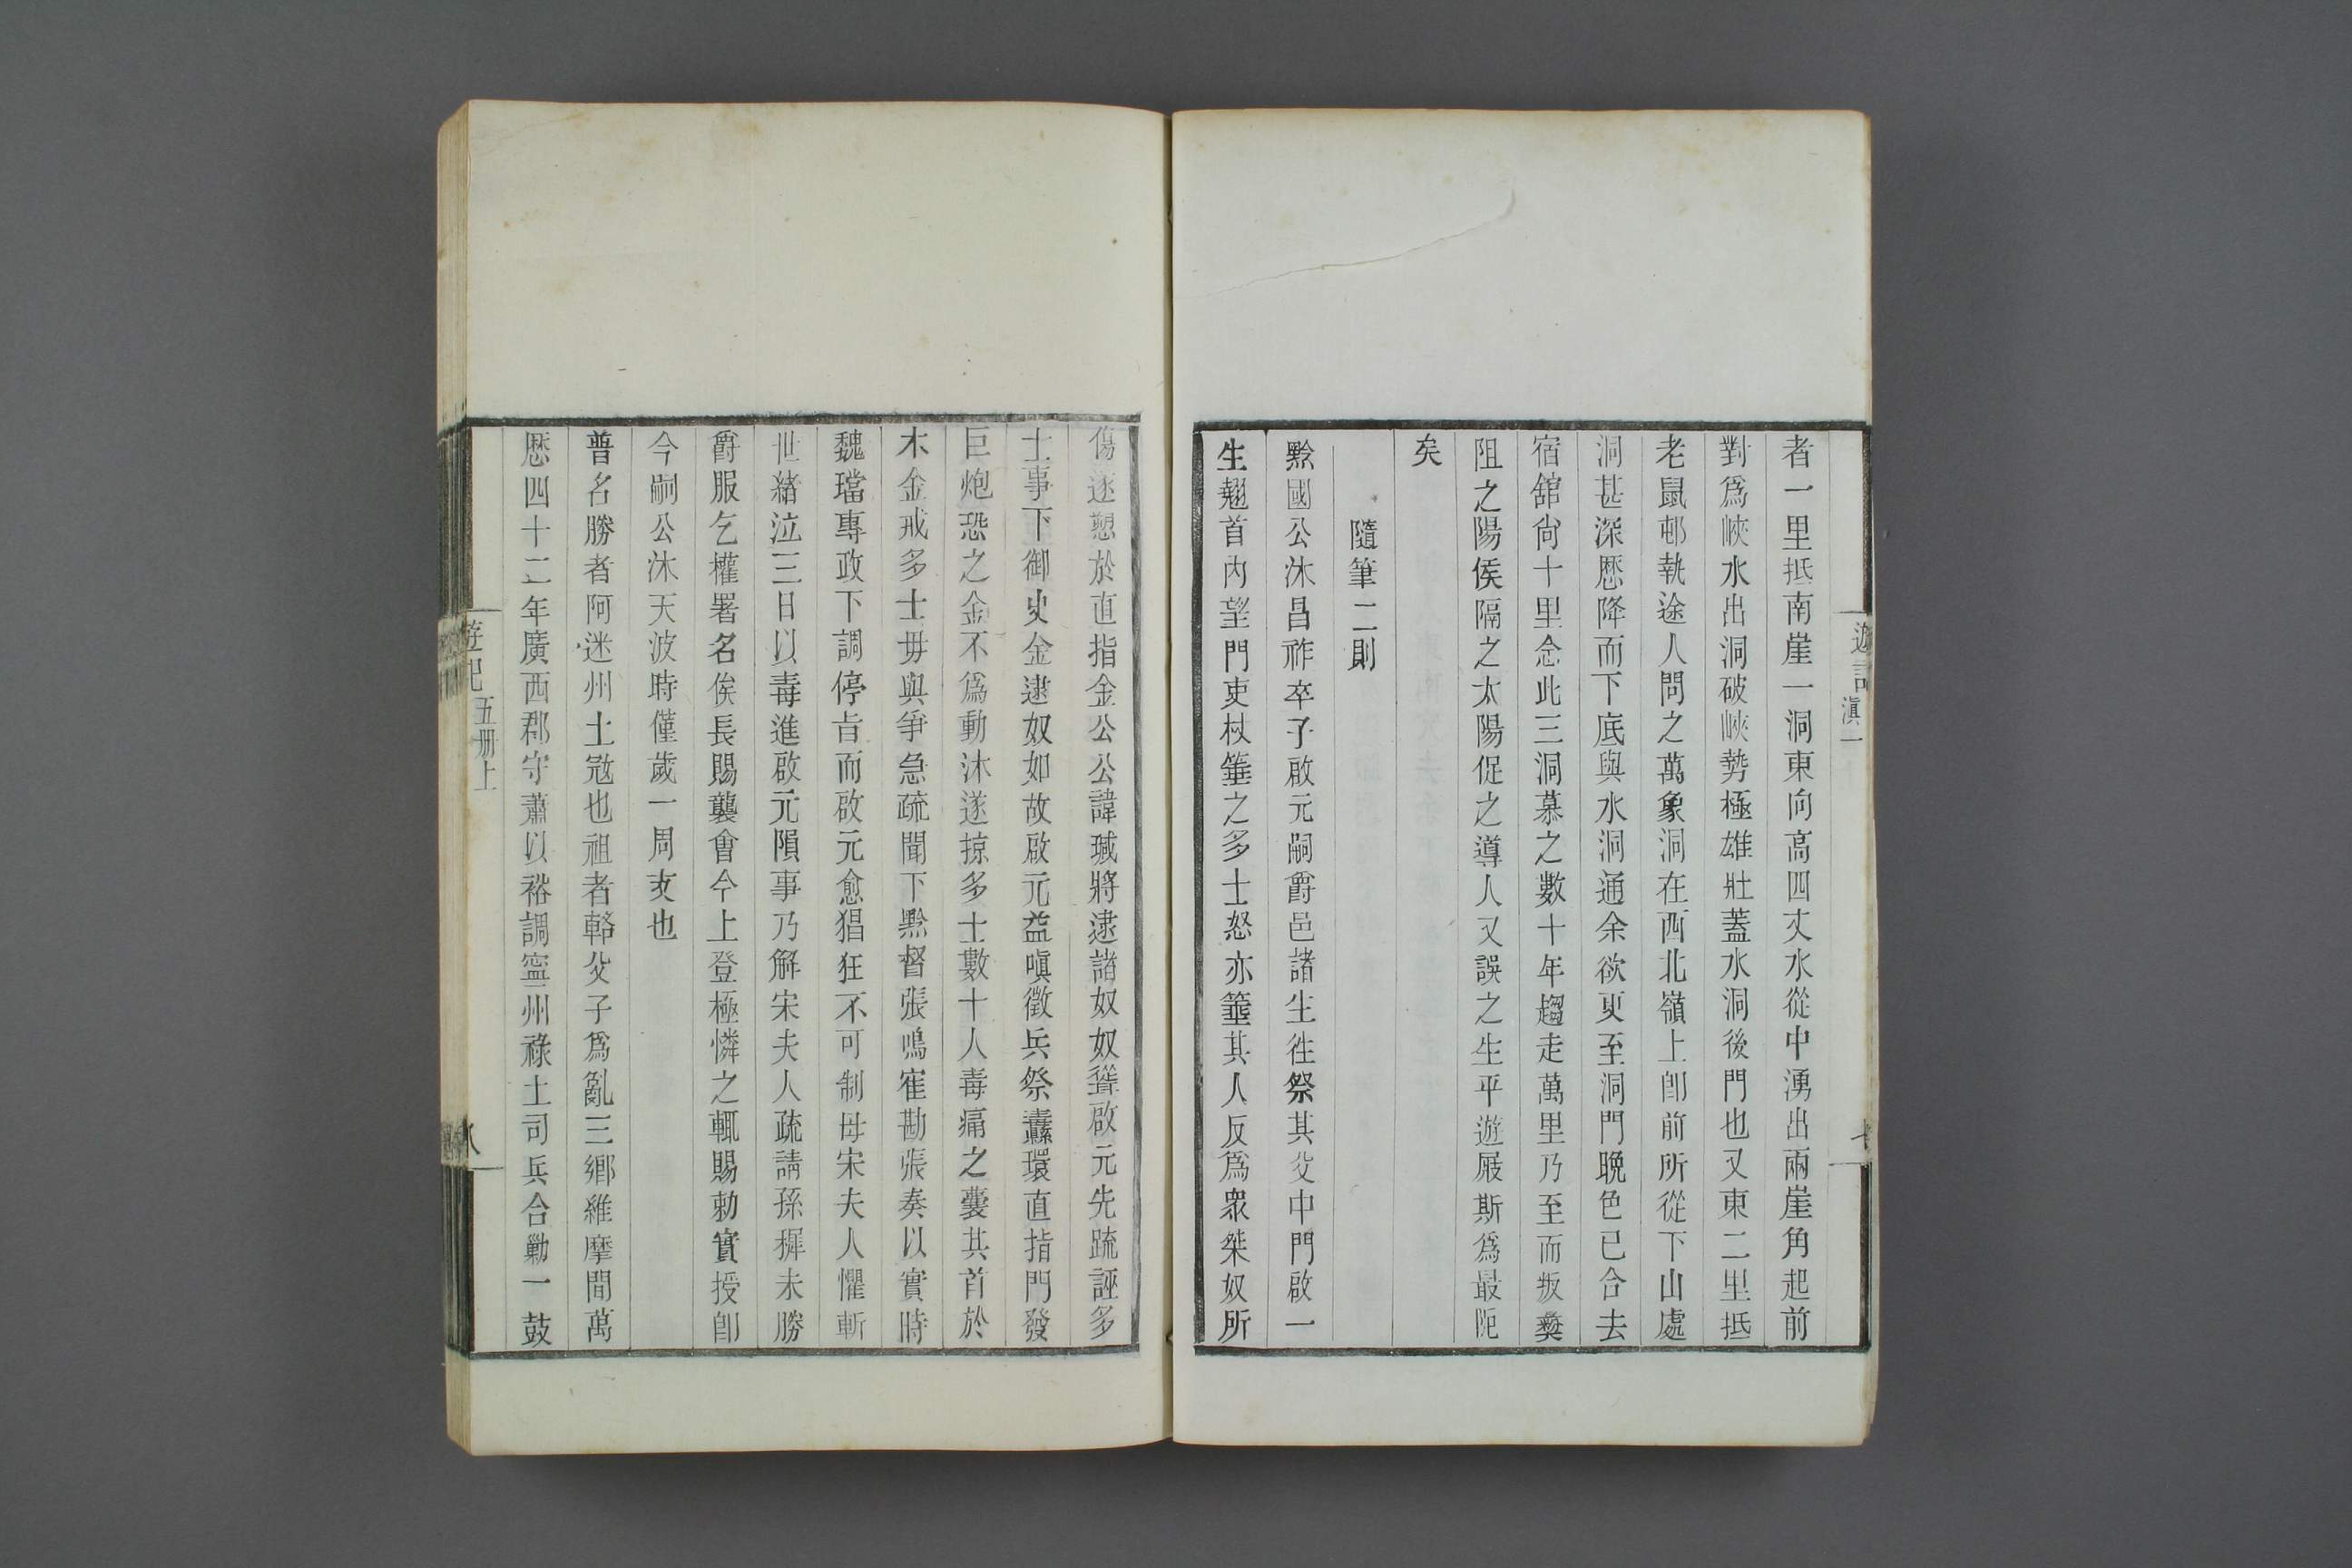 遊記滇一
七
者一里抵南崖一洞東向高四丈水從中湧出兩崖角起前
對爲峽水出洞破峽勢極雄壯蓋水洞後門也又東二里抵
老鼠邨執途人問之萬象洞在西北嶺上卽前所從下山處
洞甚深歷降而下底與水洞通余欲更至洞門晚色已合去
宿舘尙十里念此三洞慕之數十年趨走萬里乃至而叛彝
阻之陽侯隔之太陽促之導人又誤之生平遊屐斯爲最阨
矣
隨筆二則
黔國公沐昌祚卒子啟元嗣爵邑諸生徃祭其父中門啟一
生翹首內望門吏杖箠之多士怒亦箠其人反爲衆桀奴所
傷遂愬於直指金公公諱瑊將逮諸奴奴聳啟元先疏誣多
士事下御史金逮奴如故啟元益嗔徵兵祭纛環直指門發
巨炮恐之金不爲動沐遂掠多士數十人毒痛之囊其首於
木金戒多士毋與爭急疏聞下黔督張鳴寉勘張奏以實時
魏璫專政下調停旨而啟元愈猖狂不可制母宋夫人懼斬
世緖泣三日以毒進啟元隕事乃解宋夫人疏請孫穉未勝
爵服乞權署名俟長賜襲會今上登極憐之輒賜勅實授卽
今嗣公沐天波時僅歲一周支也
普名勝者阿迷州土宼也祖者輅父子爲亂三鄕維摩間萬
歷四十二年廣西郡守蕭以裕調寧州祿土司兵合勦一鼓
遊記五册上
八